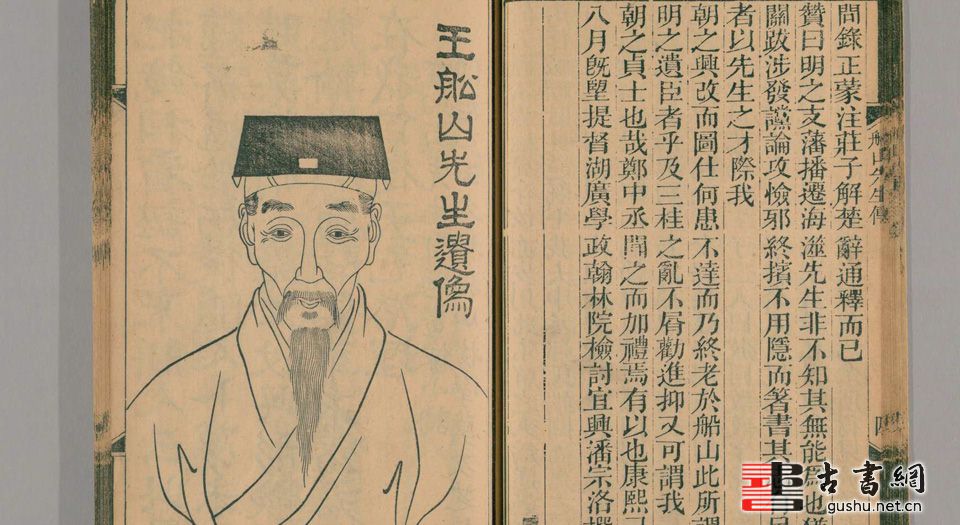 船山先生傳
問錄正蒙注莊子解楚辭通釋而已
贊曰明之支藩播遷海澨先生非不知其無能爲也
關跋涉發讜論攻憸邪終擯不用隱而箸書其
者以先生之才際我
朝之興改而圖仕何患不達而乃終老於船山此所謂
明之遺臣者乎及三桂之亂不屑勸進抑又可謂我
朝之貞士也哉鄭中丞聞之而加禮焉有以也康熙
八月旣望提督湖廣學政翰林院檢討宜興潘宗洛撰
王船山先生遺像
古書網
gushu.net.cn